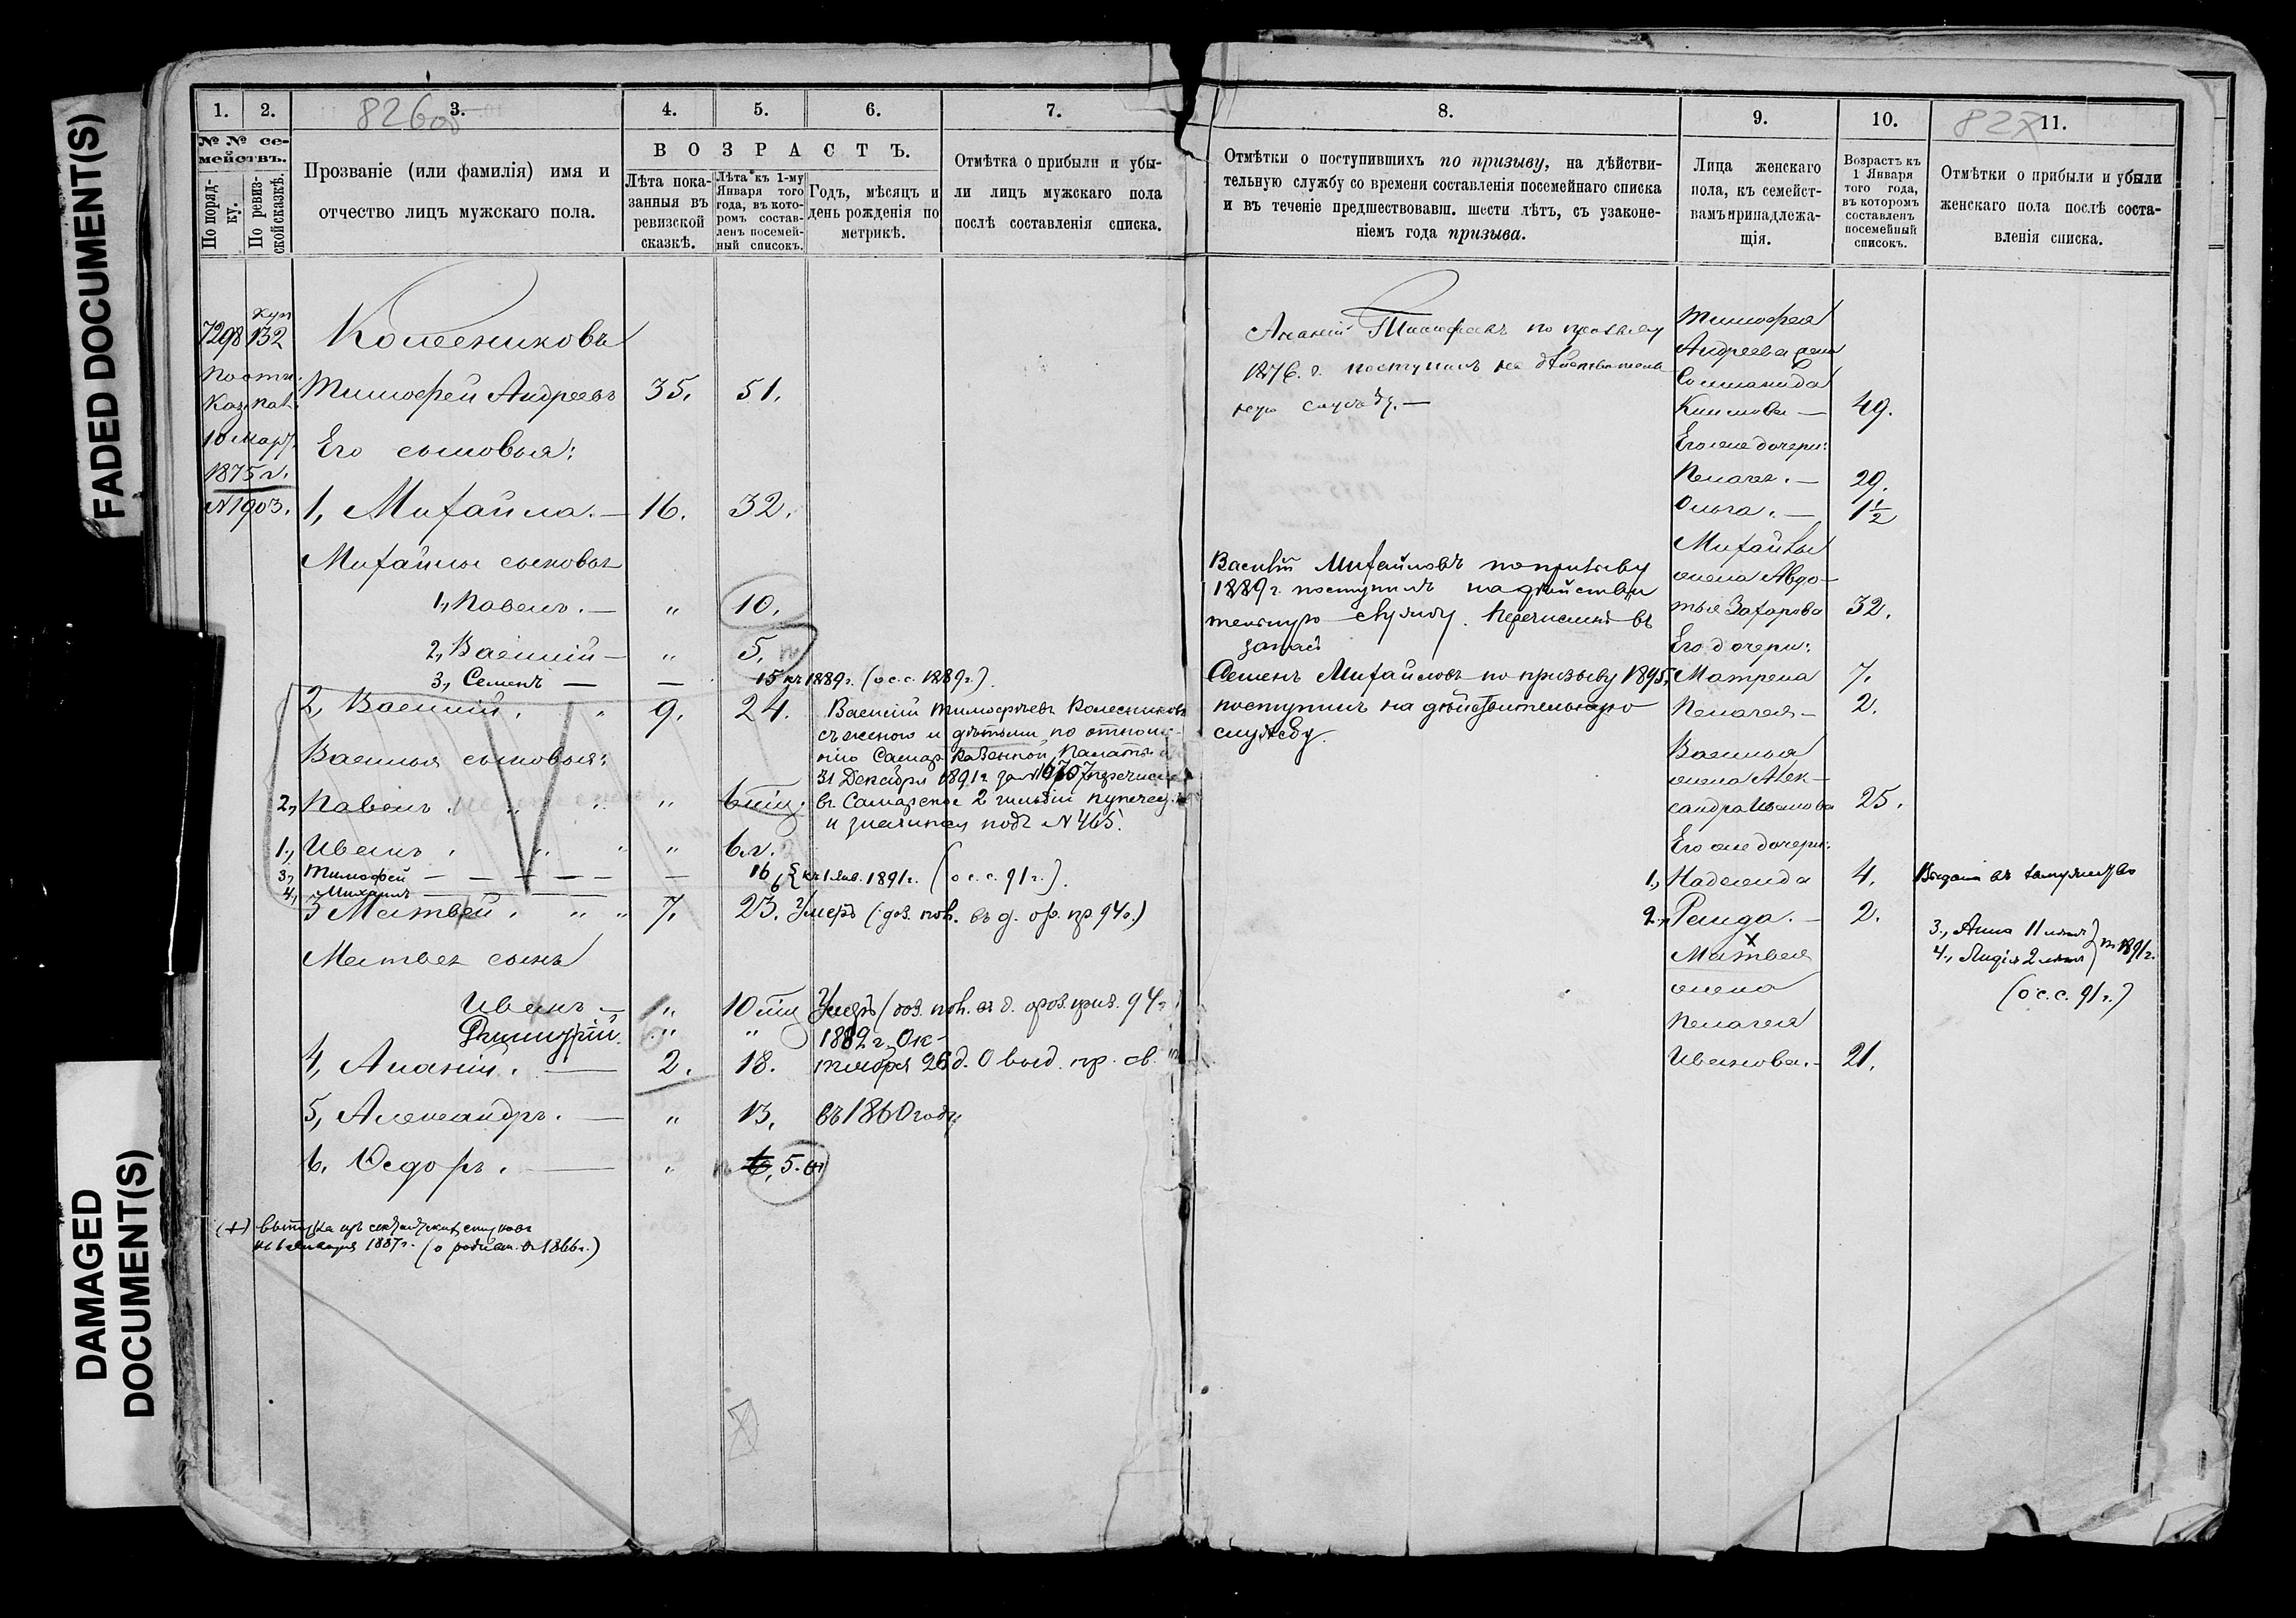 FADED DOCUMENT(S)
DAMAGED
DOCUMENT(S)
1.
2.
3.
4.
5.
6.
7.
826об
№ № се-
мействъ.
По поряд-
ку.
По ревиз-
ской сказкѣ.
Прозваніе (или фамилія) имя и
отчество лицъ мужскаго пола.
ВОЗРАСТЪ.
Лѣта пока-
занныя въ
ревизской
сказкѣ.
Лѣта къ 1-му
Января того
года, въ кото-
ромъ состав-
ленъ посемей-
ный списокъ.
Годъ, мѣсяцъ и
день рожденія по
метрикѣ.
Отмѣтка о прибыли и убы-
ли лицъ мужскаго пола
послѣ составленія списка.
7298 132
Колесниковъ
Каз. пал.
10 Март.
1875 г.
№ 1903.
Тимофей Андреевъ 35. 51.
Его сыновья:
1, Михайла. — 16. 32.
Михайлы сыновья
1, Павелъ. — „ 10.
2, Василій — „ 5.
3, Семенъ — — 15 къ 1889 г. (о с. с. 1889 г.)
2, Василій. „ 9. 24. Василій Тимофѣевъ Колесниковъ
съ женою и дѣтьми, по отноше-
нію Самар. Казенной Палаты
31 Декабря 1891 г. за № перечислен
въ Самарское 2 гильдіи купечес.
и значится подъ № 465.
Василья сыновья:
2, Павелъ. „ „ „ 6 мѣц.
1, Иванъ. „ „ „ 6 г.
3, Тимофей — — — — — 16
4, Михаилъ — 6 } къ 1 янв. 1891 г. (о с. с. 91 г.).
3 Матвѣй. „ „ 7. 23. Умеръ (дов. пов. въ д. ор. пр 94 г.)
Матвея сынъ
Иванъ — „ 10 мѣц Умеръ (дов. пов. въ д. 94 г.
Дмитрій. „ „ 1882 г. Ок-
4, Ананій. — 2. 18. тября 26 д. О выд. пр. св.
5, Александръ. — „ 13. въ 1860 году
6. Ѳедоръ. — „ 6, 5. (+)
(+) изъ списковъ
1887 г. (о родивш. въ 1866 г.)
8.
9.
10.
11.
827
Отмѣтки о поступившихъ по призыву, на дѣйстви-
тельную службу со времени составленія посемейнаго списка
и въ теченіе предшествовавш. шести лѣтъ, съ узаконе-
ніемъ года призыва.
Лица женскаго
пола, къ семейст-
вамъ принадлежа-
щія.
Возрастъ къ
1 Января
того года,
въ которомъ
составленъ
посемейный
списокъ.
Отмѣтки о прибыли и убыли
женскаго пола послѣ соста-
вленія списка.
Ананій Тимофеевъ по призыву
1876. г. поступилъ на дѣйствитель-
ную службу. —
Василій Михайловъ по призыву
1889 г. поступилъ на дѣйстви
тельную службу. Перечисленъ въ
запасъ
Семенъ Михайловъ по призыву 1895 г.
поступилъ на дѣйствительную
службу.
Тимофея
Андреева жена
Соломанида
Климова — 49.
Его же дочери:
Пелагея. — 29.
Ольга. — 1½
Михайлы
жена Авдо-
тья Захарова 32.
Его дочери:
Матрена 7.
Пелагея — 2.
Василья
жена Алек-
сандра Иванова 25.
Его же дочери:
1, Надежда 4. Выдана въ замужество
2, Раида. — 2.
3, Анна 11 лѣтъ
4, Лидія 2 лѣтъ } къ 1891 г.
(о с. с. 91 г.)
Матвея
жена
Пелагея
Иванова. — 21.